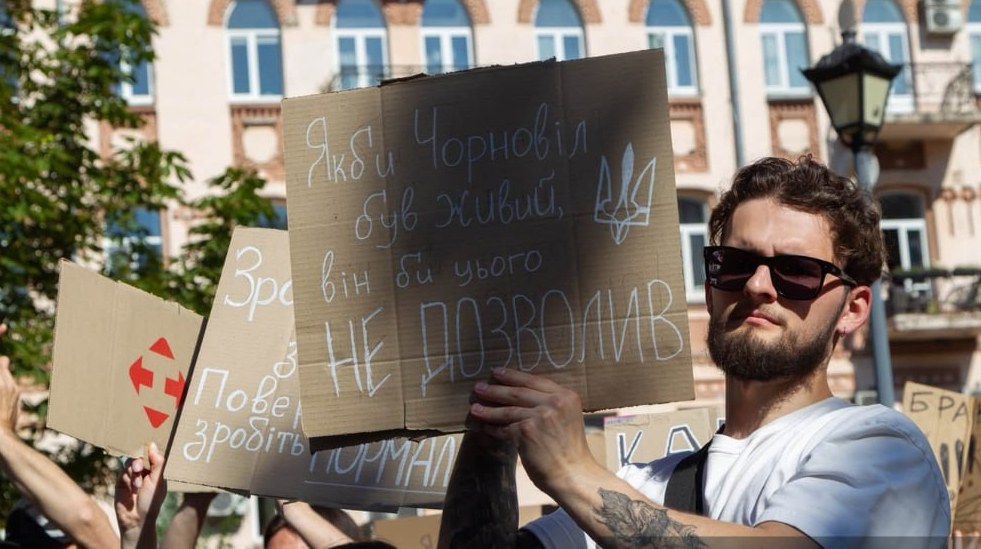 Якби Чорновіл
був живий,
він би цього
НЕ ДОЗВОЛИВ
Зро
З
Пове
зробіть
НОРМАЛ
КА
БРА